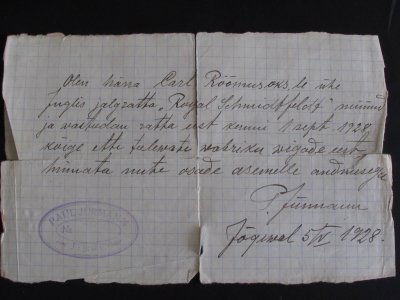 Olen härra Carl Röömus.oks.le ühe
Inglis jalgratta „Royal Schmidtfeldt" müünud
ja wastutan ratta eest kunni 1 sept 1928,
kõige ette tulewate wabriku wigade eest
hinnata uute osade asemelle andmisega
P. Jürmann
Jõgewal 5/IV 1928.
PAUL JÜRMANN